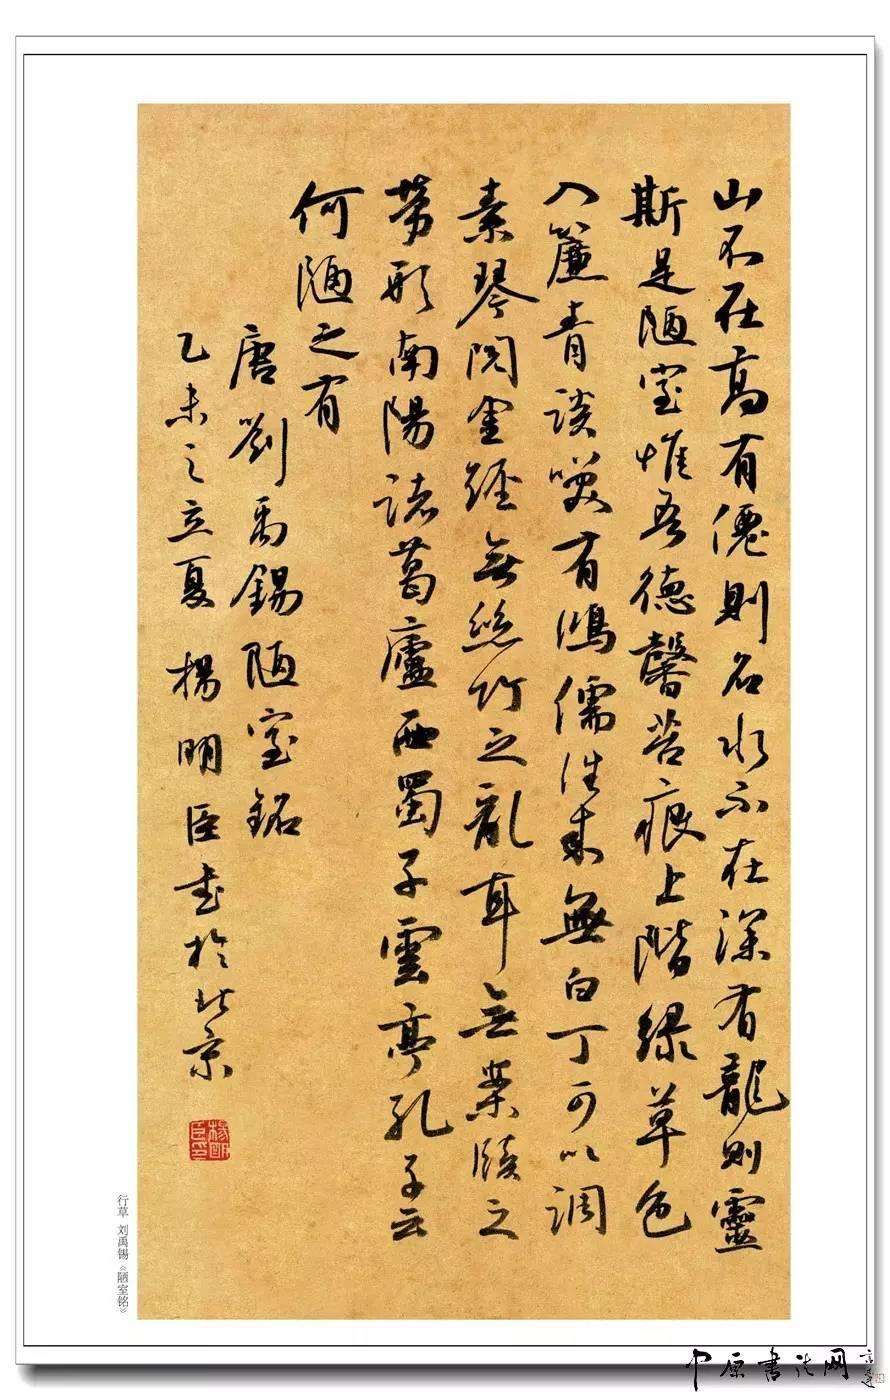 山不在高有僊則名水不在深有龍則靈
斯是陋室惟吾德馨苔痕上階綠草色
入簾青談笑有鴻儒往來無白丁可以調
素琴閱金經無絲竹之亂耳無案牘之
勞形南陽諸葛廬西蜀子雲亭孔子云
何陋之有
唐劉禹錫陋室銘
乙未之立夏 楊明臣書於北京
楊明臣印
行草 刘禹锡《陋室铭》
中原书法网